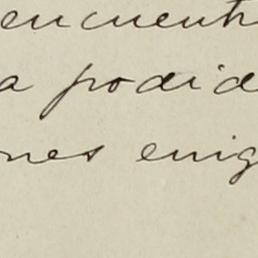 encuentr
a podid
nes enig